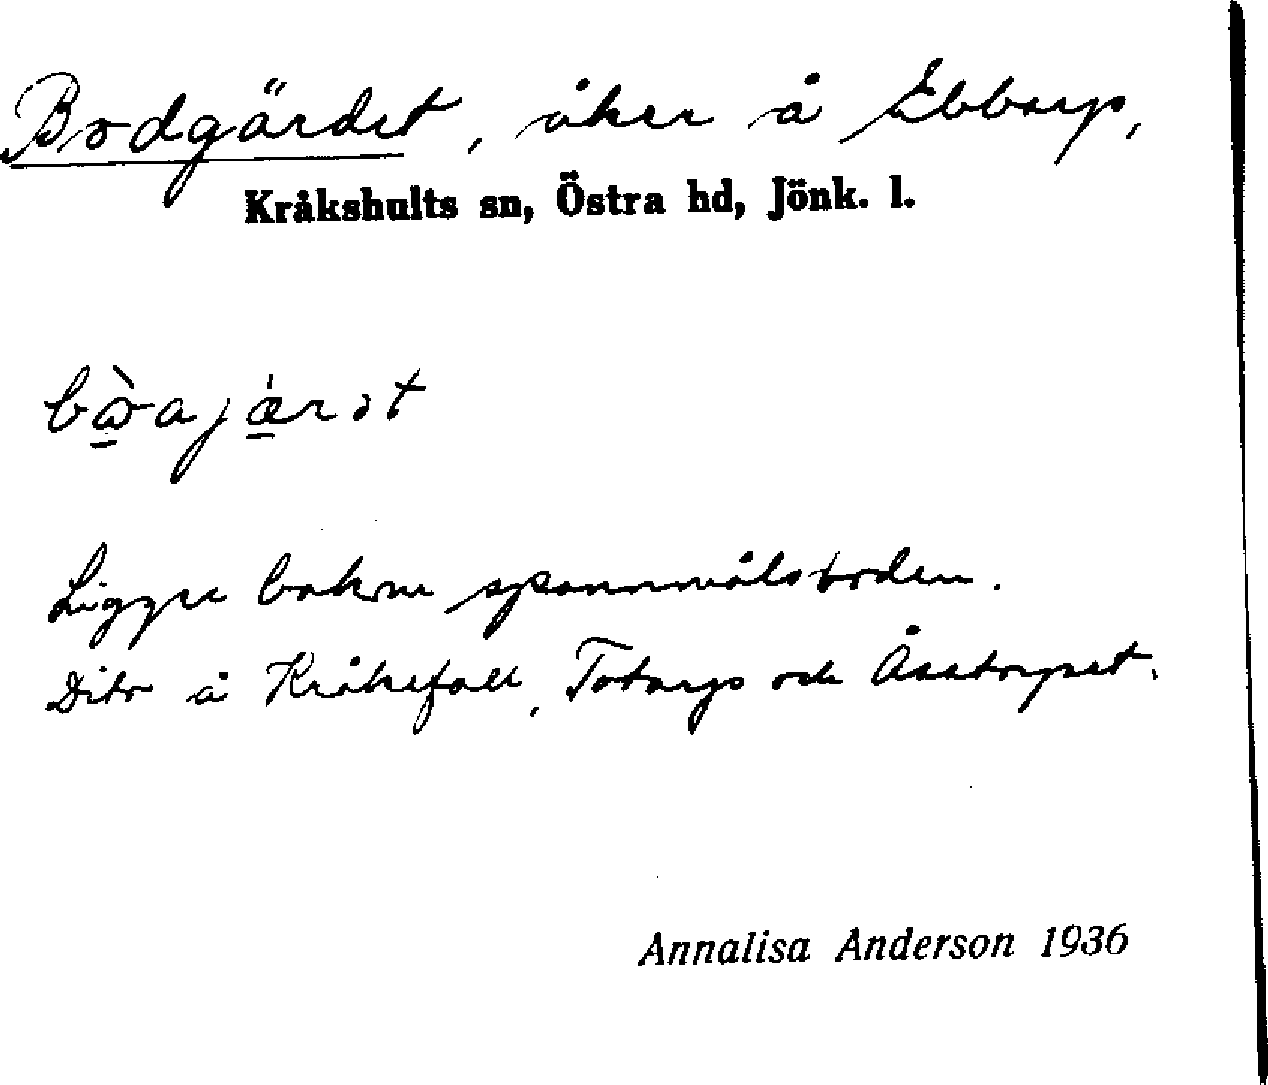 Bodgärdet, åker å Ebbarp,
Kråkshults sn, Östra hd, Jönk. l.
bὼ̲ajǽ̲rət
Ligger bakom spannmålsboden.
Dito å Kråkefall, Totarp och Åsatorpet.
Annalisa Anderson 1936